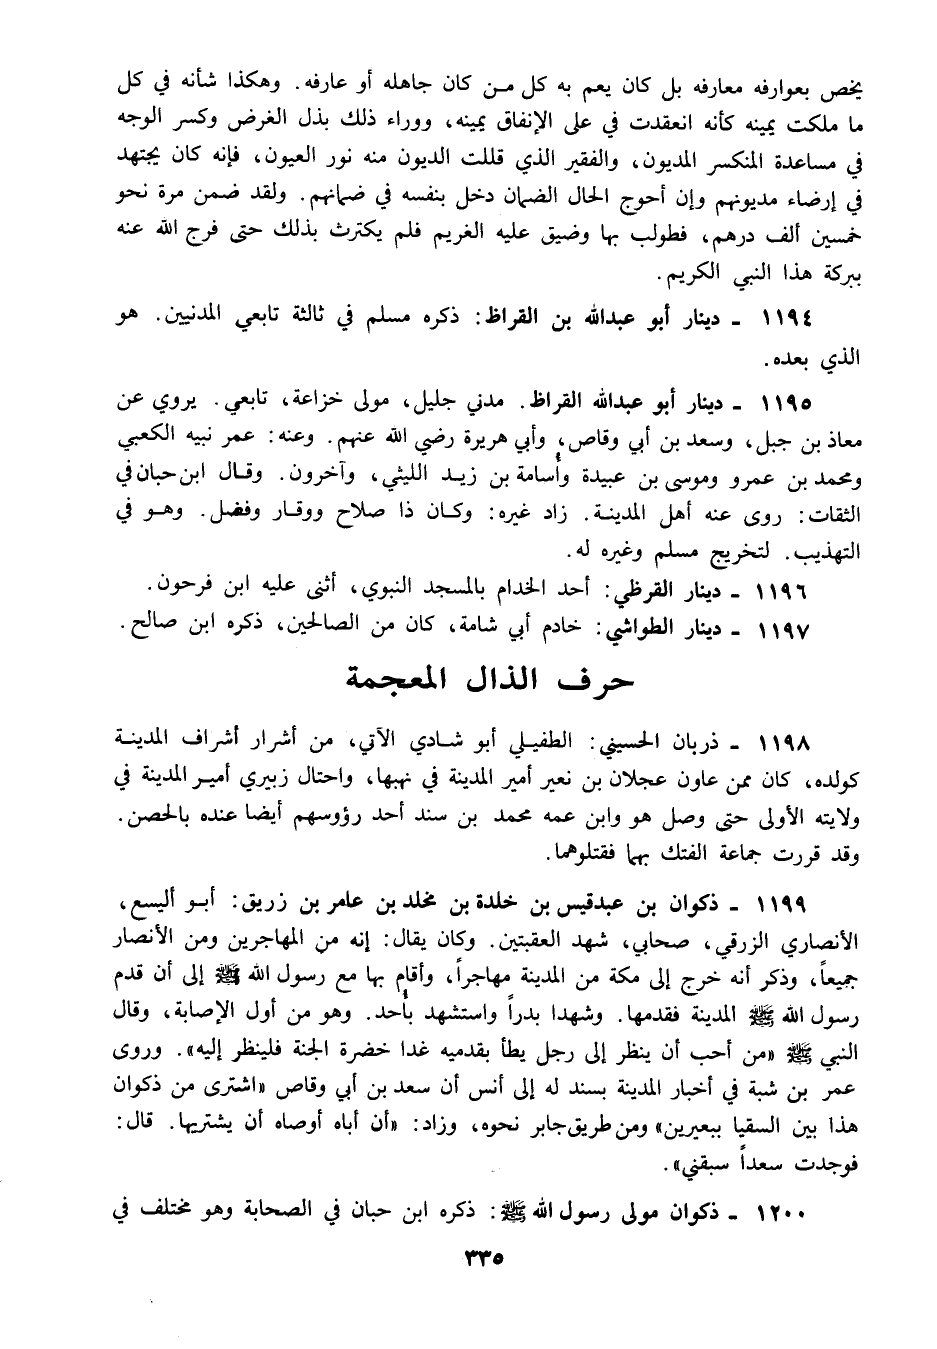 يخص بعوارفه معارفه بل كان يعم به كل مـن كان جاهله أو عارفه. وهكذا شأنه في كل
ما ملكت يمينه كأنه انعقدت في على الإنفاق يمينه، ووراء ذلك بذل الغرض وكسر الوجه
في مساعدة المنكسر المديون، والفقير الذي قللت الديون منه نور العيون، فإنه كان يجتهد
في إرضاء مديونهم وإن أحوج الحال الضمان دخل بنفسه في ضمانهم. ولقد ضمن مرة نحو
خمسين ألف درهم، فطولب بها وضيق عليه الغريم فلم يكترث بذلك حتى فرج الله عنه
ببركة هذا النبي الكريم.
١١٩٤ ـ دينار أبو عبدالله بن القراظ: ذكره مسلم في ثالثة تابعي المدنيين. هو
الذي بعده.
١١٩٥ ـ دينار أبو عبدالله القراظ. مدني جليل، مولى خزاعة، تابعي. يروي عن
معاذ بن جبل، وسعد بن أبي وقاص، وأبي هريرة رضي الله عنهم. وعنه: عمر نبيه الكعبي
ومحمد بن عمرو وموسى بن عبيدة وأُسامة بن زيـد الليثي، وآخرون. وقـال ابن حبان في
الثقات: روى عنه أهل المدينـة. زاد غيره: وكـان ذا صلاح ووقـار وفضل. وهـو في
التهذيب. لتخريج مسلم وغيره له.
١١٩٦ ـ دينار القرظي: أحد الخدام بالمسجد النبوي، أثنى عليه ابن فرحون.
١١٩٧ ـ دينار الطواشي: خادم أبي شامة، كان من الصالحين، ذكره ابن صالح.
حرف الذال المعجمة
١١٩٨ ـ ذربان الحسيني: الطفيلي أبو شـادي الآتي، من أشرار أشراف المدينـة
كولده، كان ممن عاون عجلان بن نعير أمير المدينة في نهبها، واحتال زبيري أميـر المدينة في
ولايته الأولى حتى وصل هو وابن عمه محمد بن سند أحد رؤوسهم أيضا عنده بالحصن.
وقد قررت جماعة الفتك بهما فقتلوهما.
١١٩٩ ـ ذكوان بن عبدقيس بن خلدة بن مخلد بن عامر بن زريق: أبـو أليسع،
الأنصاري الزرقي، صحابي، شهد العقبتين. وكان يقال: إنه من المهاجرين ومن الأنصار
جميعاً، وذكر أنه خرج إلى مكة من المدينة مهاجراً، وأقام بها مع رسول الله ﷺ إلى أن قدم
رسول الله ﷺ المدينة فقدمها. وشهدا بدراً واستشهد بأُحد. وهو من أول الإصابة، وقال
النبي ﷺ «من أحب أن ينظر إلى رجل يطأ بقدميه غدا خضرة الجنة فلينظر إليه». وروى
عمر بن شبة في أخبار المدينة بسند له إلى أنس أن سعد بن أبي وقاص «اشترى من ذكوان
هذا بين السقيا ببعيرين» ومن طريق جابر نحوه، وزاد: «أن أباه أوصاه أن يشتريها. قال:
فوجدت سعداً سبقني».
١٢٠٠ ـ ذكوان مولى رسول الله ﷺ: ذكره ابن حبان في الصحابة وهو مختلف في
٣٣٥